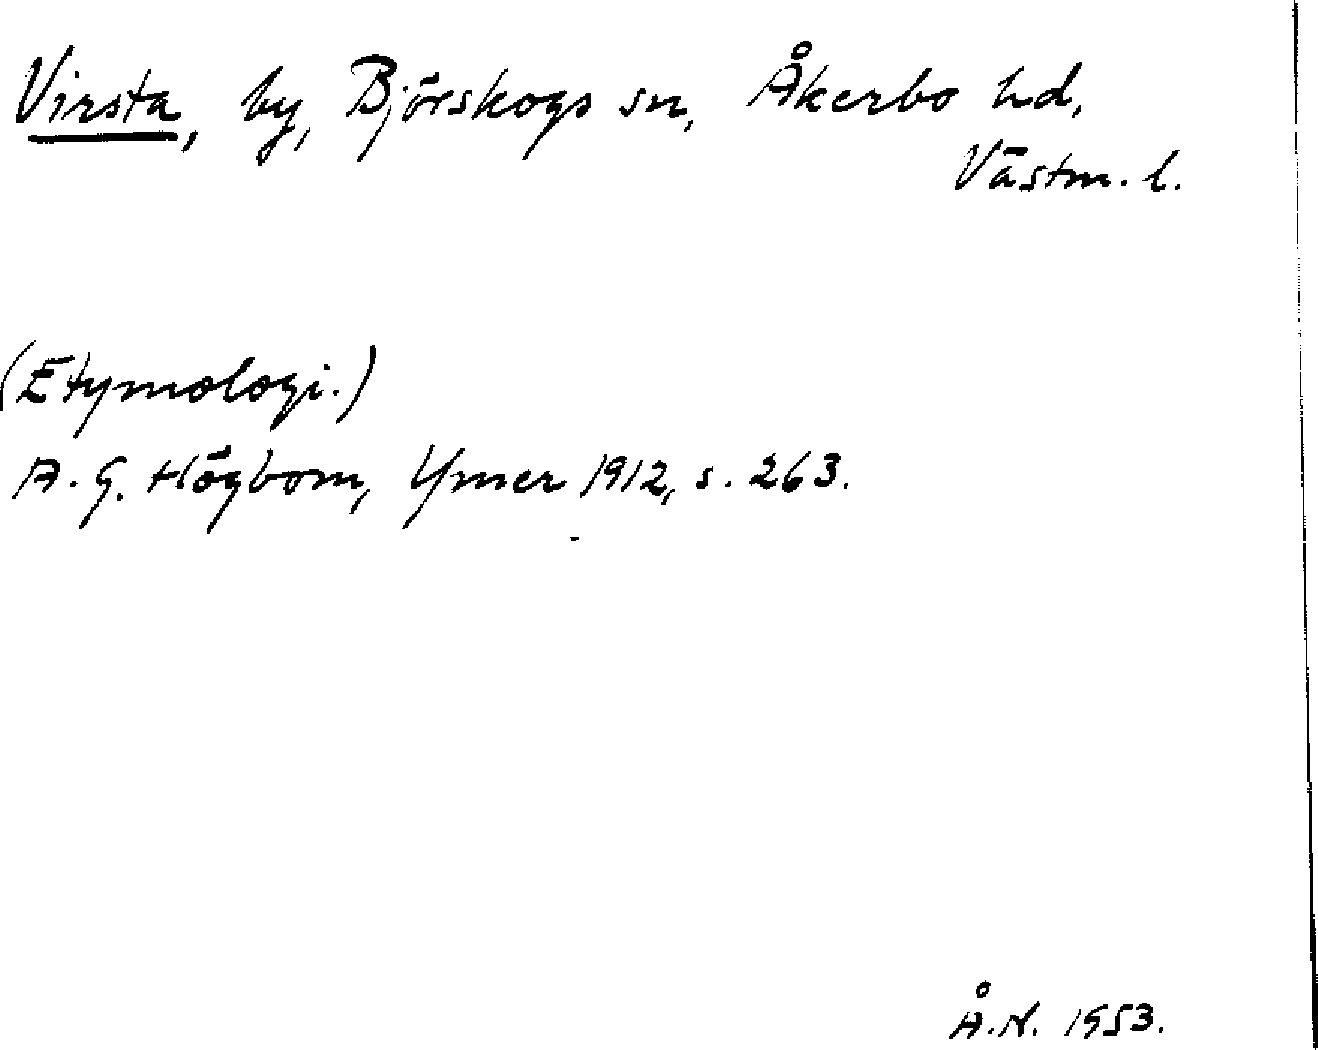 Virsta, by, Björskogs sn, Åkerbo hd,
Västm. l.
(Etymologi.)
A. G. Högbom, Ymer 1912, s. 263.
Å.N. 1953.